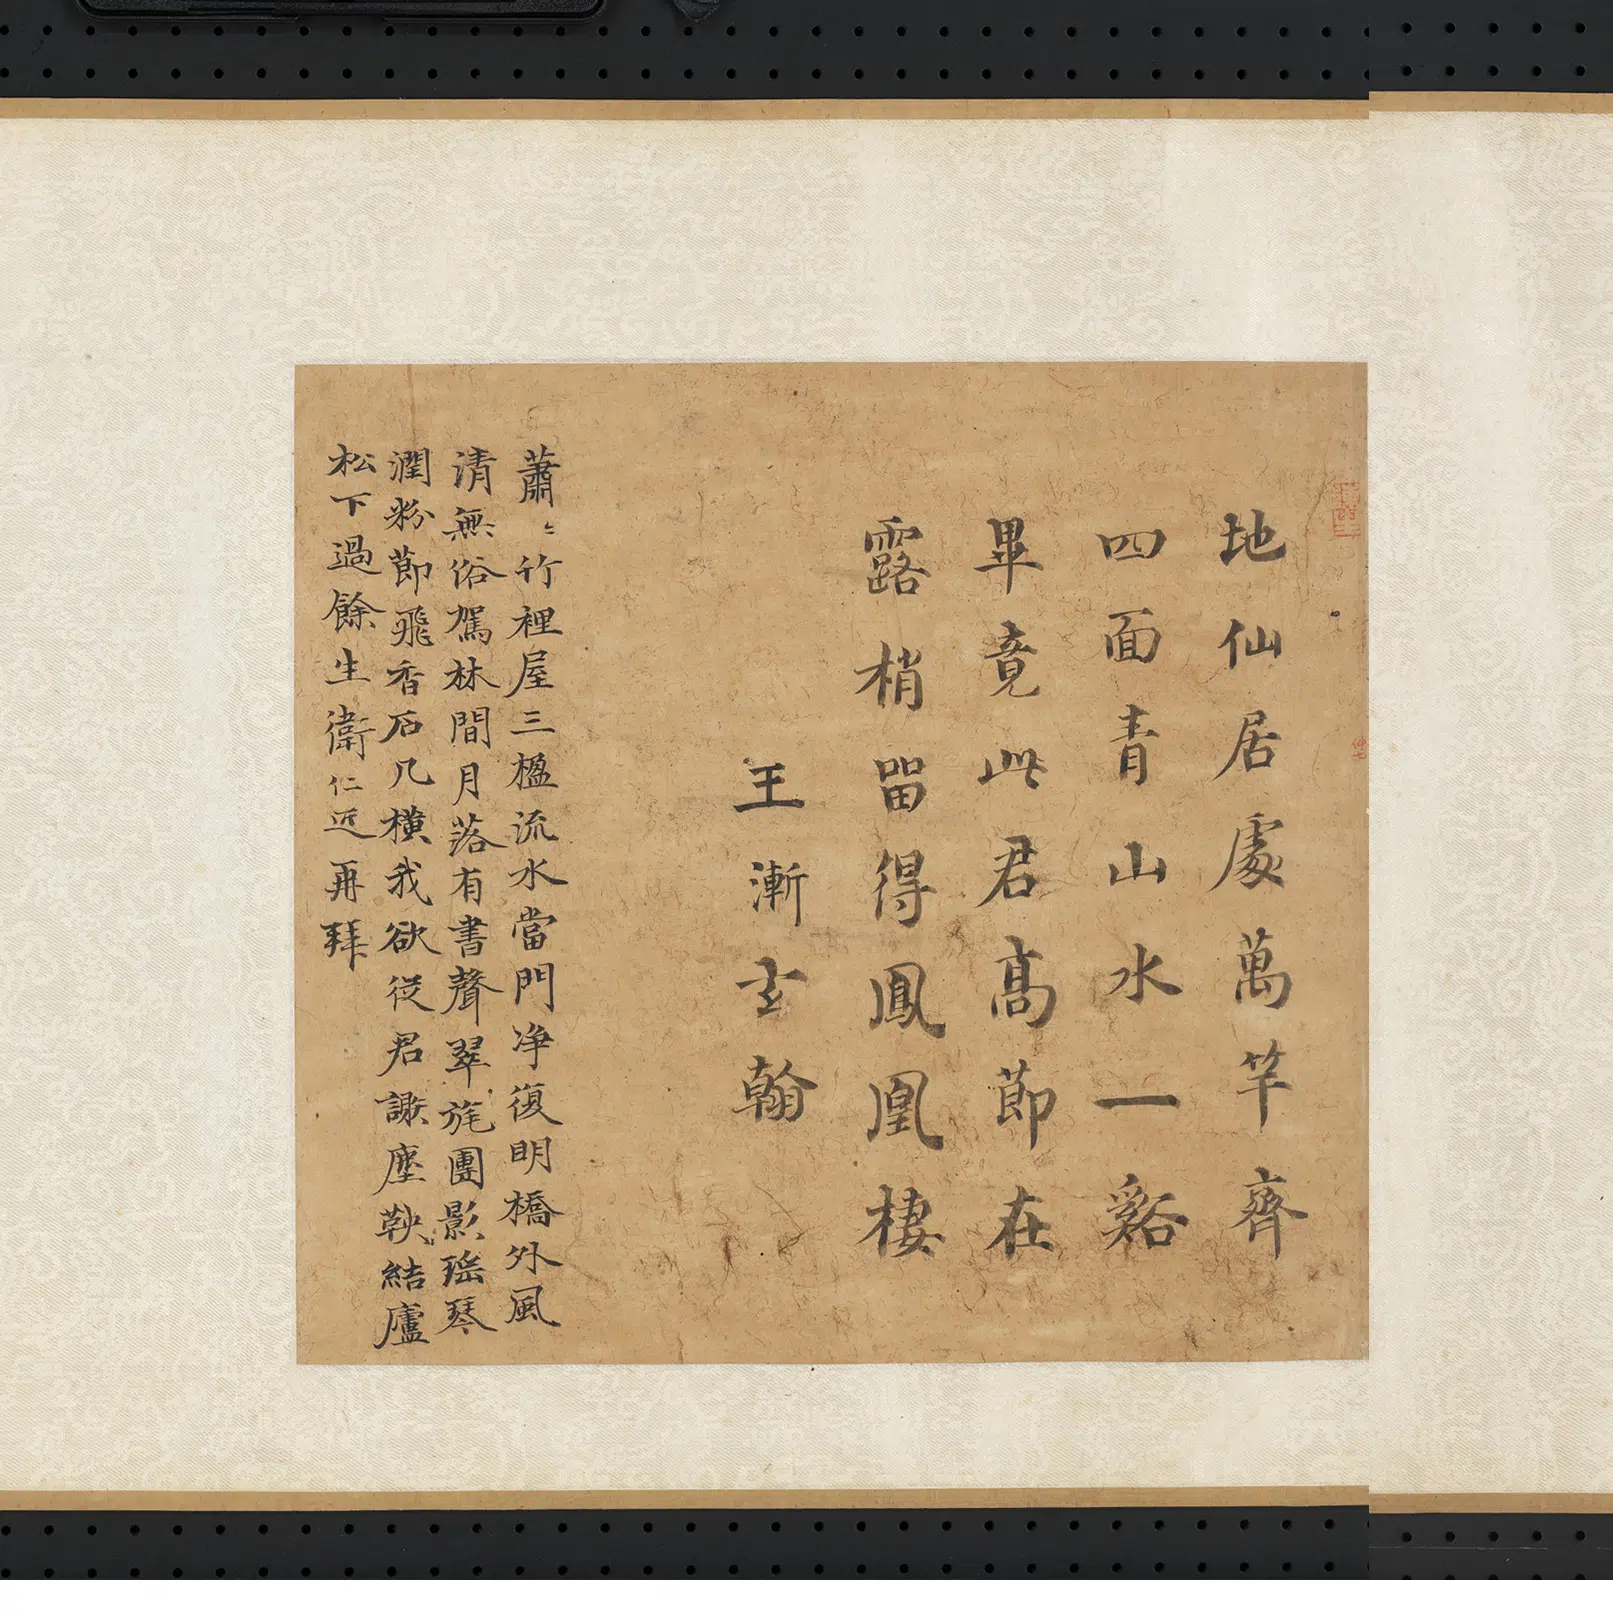 地仙居處萬竿齊
四面青山水一谿
畢竟此君高節在
露梢留得鳳凰棲
王漸玄翰
蕭〻竹裡屋三楹流水當門净復明橋外風
清無俗駕林間月落有書聲翠旄團影瑶琴
潤粉節飛香石几橫我欲從君謝塵鞅結廬
松下過餘生衛仁近再拜